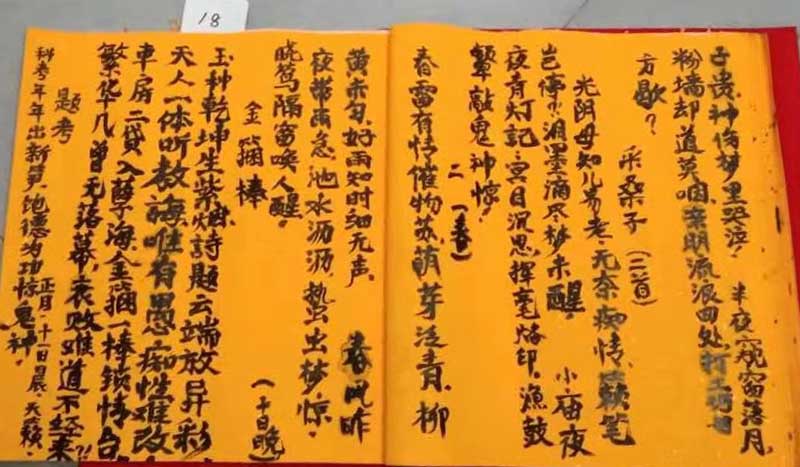 18
子贵神伤梦里哭泣！ 半夜窥窗落月，
粉墙却道莫咽。亲朋流浪四处
方歇？
采桑子（二首）
光阴毋知儿易老，无奈痴情。秃笔
岂停，泪墨滴尽梦未醒。 小庙夜
夜青灯记，冥目沉思。挥毫烙印，渔鼓
声敲鬼神惊。
二（春）
春雷有情催物苏，萌芽泛青。柳
黄未匀，好雨知时细无声。 春风昨
夜带雨急，池水沥沥。蛰虫梦惊，
晓莺隔窗唤人醒。 （十日晚）
金箍棒
玉种乾坤生紫烟，詩题云端放异彩
天人一体听教诲，唯有愚痴性难改
车房二贷入孽海，金箍一棒锁情台
繁华几曾无落幕，衰败难道不经来？！
题考
科考年年出新第，饱德为功惊鬼神。
正月·十一日晨·天籁·